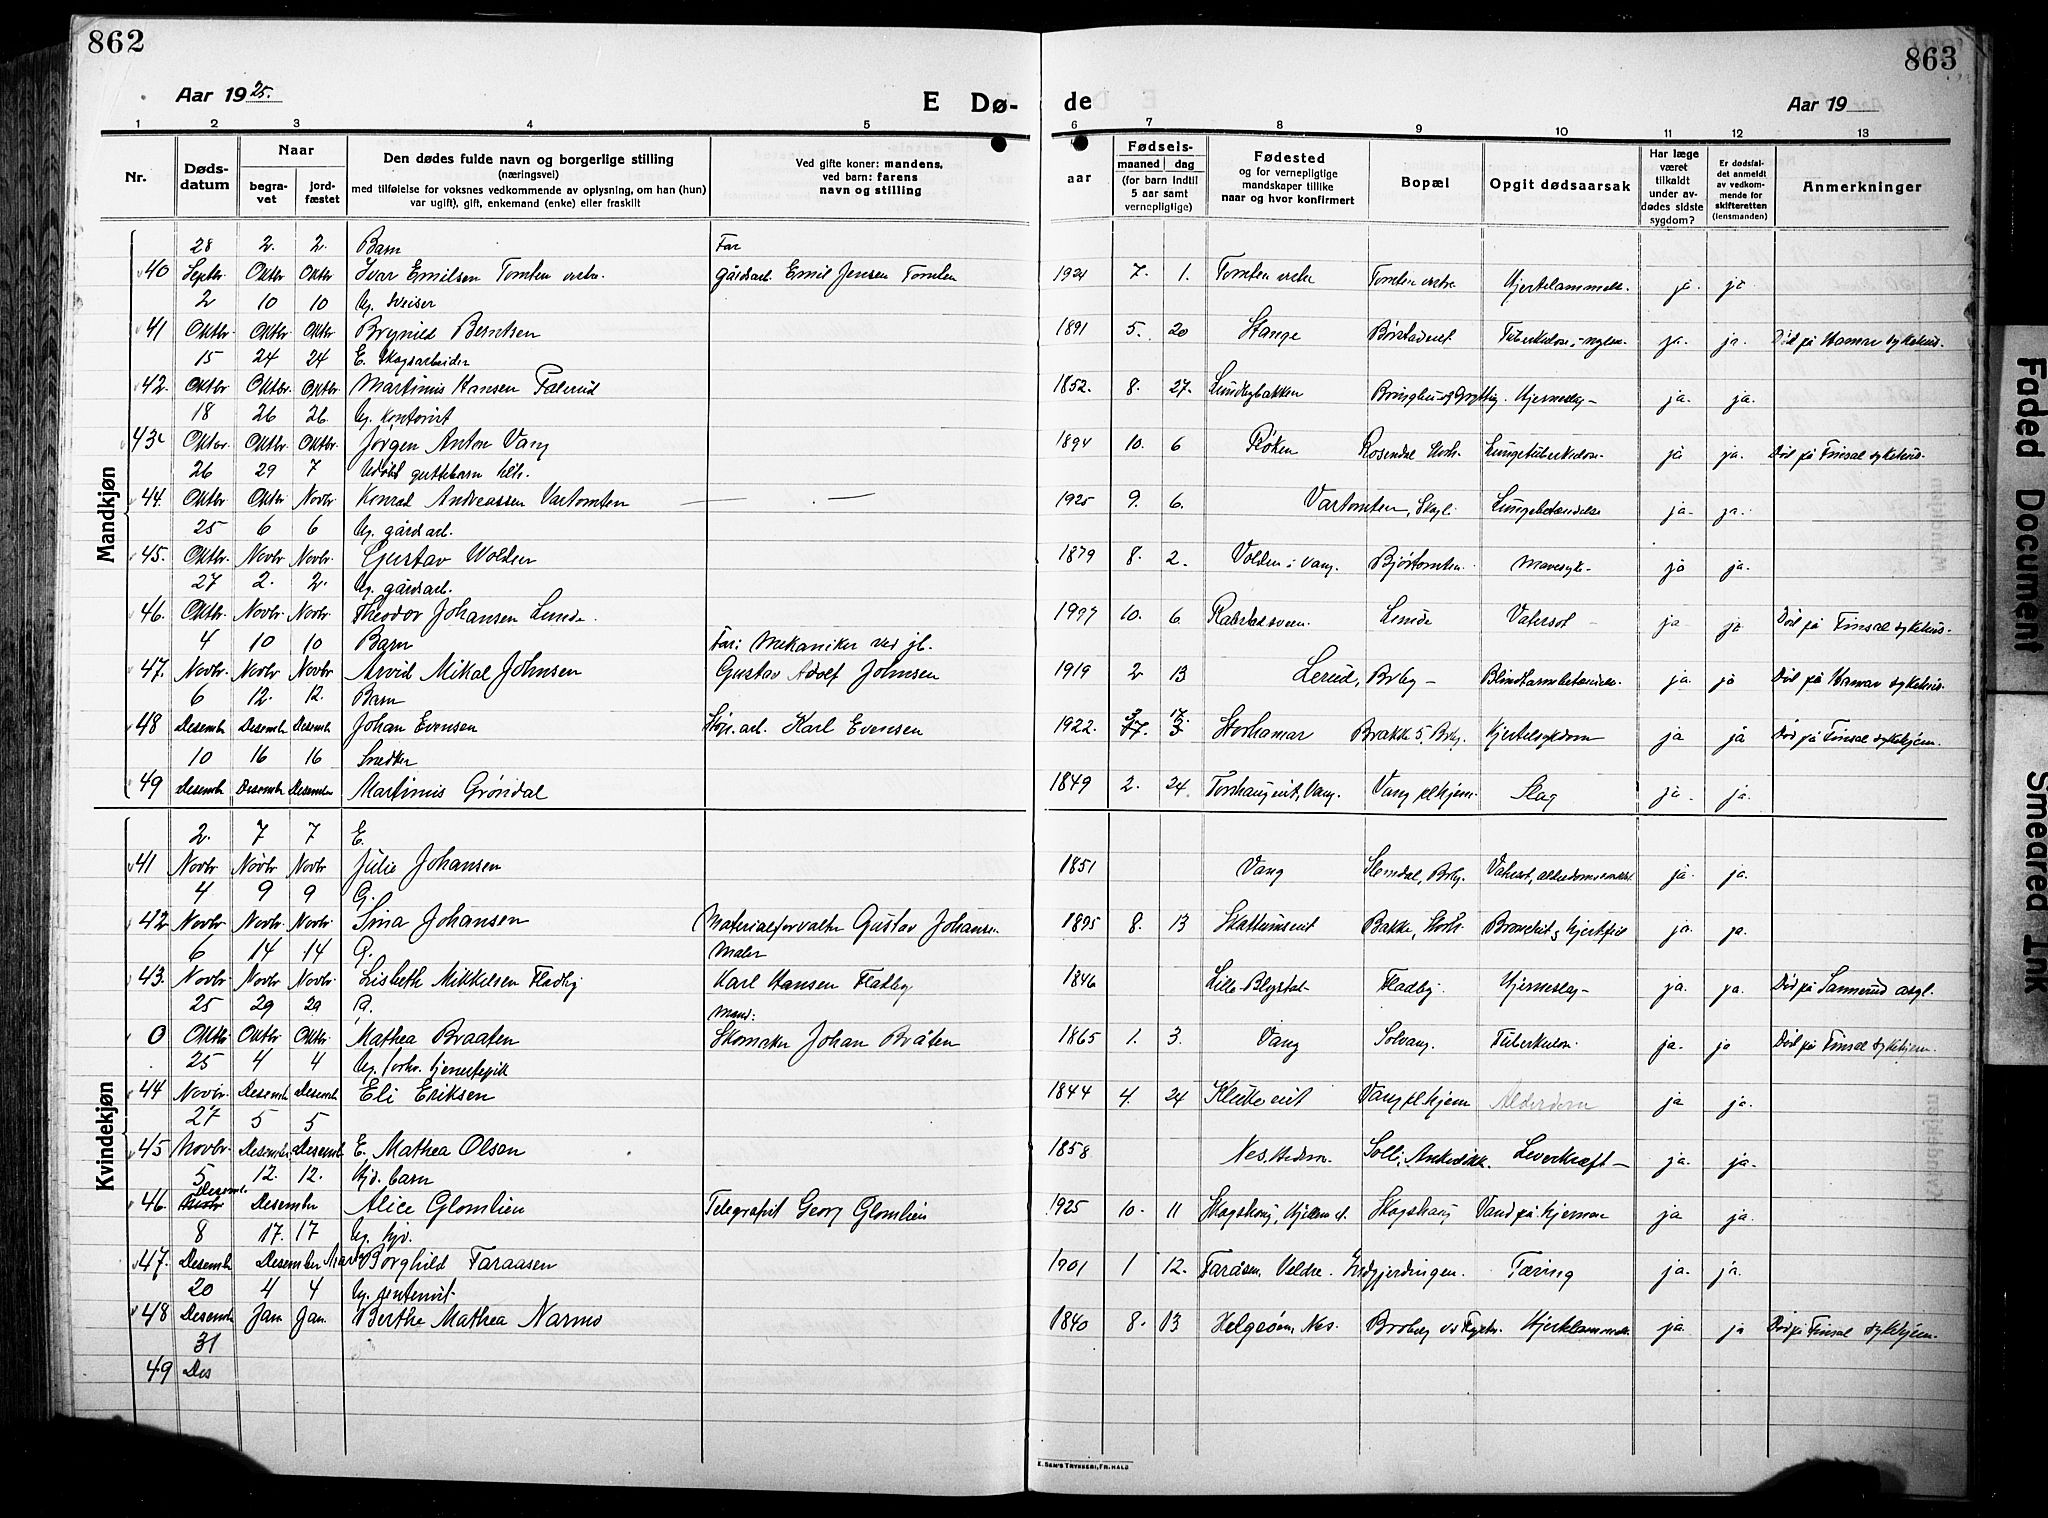 862
863
Aar 1925.
E Dø-
de
Aar 19
1 2 3 4 5 6 7 8 9 10 11 12 13
Nr.
Døds-
datum
Naar
begra-
vet
jord-
fæstet
Den dødes fulde navn og borgerlige stilling
(næringsvei)
med tilføielse for voksnes vedkommende av oplysning, om han (hun)
var ugift), gift, enkemand (enke) eller fraskilt
Ved gifte koner: mandens,
ved barn: farens
navn og stilling
Fødsels-
aar
maaned dag
(for barn indtil
5 aar samt
vernepligtige)
Fødested
og for vernepligtige
mandskaper tillike
naar og hvor konfirmert
Bopæl
Opgit dødsaarsak
Har læge
været
tilkaldt
under av-
dødes sidste
sygdom?
Er dødsfal-
det anmeldt
av vedkom-
mende for
skifteretten
(lensmanden)
Anmerkninger
Mandkjøn
28 2. 2. Barn Far
40 Septbr. Oktbr Oktbr Ivar Emilsen Tomten vestre. gårdsarb. Emil Jensen Tomten 1921 7. 1. Tomten vestre Tomten vestre Hjertelammelse. ja. ja
2 10 10 Ug. Sveiser
41 Oktbr. Oktbr. Oktbr. Brynild Berntsen 1891 5. 20 Stange ja. ja. Död på Hamar sykehus.
15 24 24 E. Skogsarbeider
42. Oktbr Oktbr. Oktbr Martinus Hansen Falerud 1852. 8. 27. Lundbybakken Hjerneslag ja. ja.
18 26 26 Ug. kontorist
43. Oktbr. Oktbr. Oktbr. Jørgen Anton Vang 1894 10. 6 Røken Rosendal Storh. Lungetuberkulose. ja ja. Död på Finsal sykehus.
26 29 7
44. Oktbr Oktbr Novbr Konrad Andreassen Vartomten 1925 9. 6. Vartomten, Skogli Lungebetændelse ja. ja.
25 6 6 Ug. gårdsarb.
45. Oktbr. Novbr Novbr. Gustav Wolden 1879 8. 2. Volden i Vang. Bjørtomten. Mavesyk. ja ja.
27 2. 2. Ug. gårdsarb.
46. Oktbr. Novbr. Novbr. Theodor Johansen Lunde. 10. 6 Lunde Vatersot ja ja Död på Finsal sykehus.
4 10 10 Barn Far: Mekaniker ved jb.
47. Novbr. Novbr. Novbr. Arvid Mikal Johnsen Gustav Adolf Johnsen 1919 2 13 Lerud, Brby Blindtarmbetændelse. ja. ja Död på Hamar sykehus.
6 12. 12. Barn
48 Desembr Desembr Desembr Johan Evensen Karl Evensen 1922. 3 17. Storhamar Brakke 5, Brby. Kjertelsykdom ja ja Död på Finsal sykehjem.
10 16 16 Snedker
49 Desembr Desembr Desembr Martinus Grøndal 1849 2. 24 Vang. Vang plhjem. Slag ja. ja.
Kvindekjøn
2. 7 7 E.
41 Novbr Novbr Novbr. Julie Johansen 1851 Vang Slemdal, Brby. ja. ja.
4 9 9 G.
42 Novbr Novbr. Novbr. Sina Johansen Materialforvalter Gustav Johansen 1895 8. 13 Skattumseiet Bakke, Storh. ja. ja.
6 14 14 G. Maler
43. Novbr. Novbr. Novbr. Lisbeth Mikkelsen Fladby Karl Hansen Fladby 1846 Fladby. Hjerneslag ja. ja. Död på Sannerud asyl.
25 29 29 G. Mand:
0 Oktbr Oktbr. Oktbr. Mathea Braaten Skomaker Johan Bråten 1865 1. 3. Vang Solvang. Tuberkulose. ja. ja Död på Finsal sykehjem.
25 4 4 Ug. forhv. tjenestepik
44 Novbr. Desembr Desembr Eli Eriksen 1844 4. 24 Klukeeiet Vang plhjem Alderdom ja ja.
27 5 5
45 Novbr. Desembr Desembr. E. Mathea Olsen 1858 Nes, Hedem. Leverkræft ja. ja.
5 12. 12. Hjd. barn
46. Desembr. Desembr Alice Glomlien Telegrafist Georg Glomlien 1925 10. 11 Skogshaug Vand på hjernen ja ja.
8 17. 17 Ug. hjv.
47. Desembr Desembr Borghild Faraasen 1901 1 12. Faråsen, Veldre. Engjerdingen. Tæring ja. ja.
20 4 4 Ug.
48 Desembr Jan Jan. Berthe Mathea Narmo 1840 8. 13 Nes. Hjertelammelse ja. ja Död på Finsal sykehjem.
31
49 Des
E. SEM'S TRYKKERI, FR.HALD
Faded Document
Smeared Ink